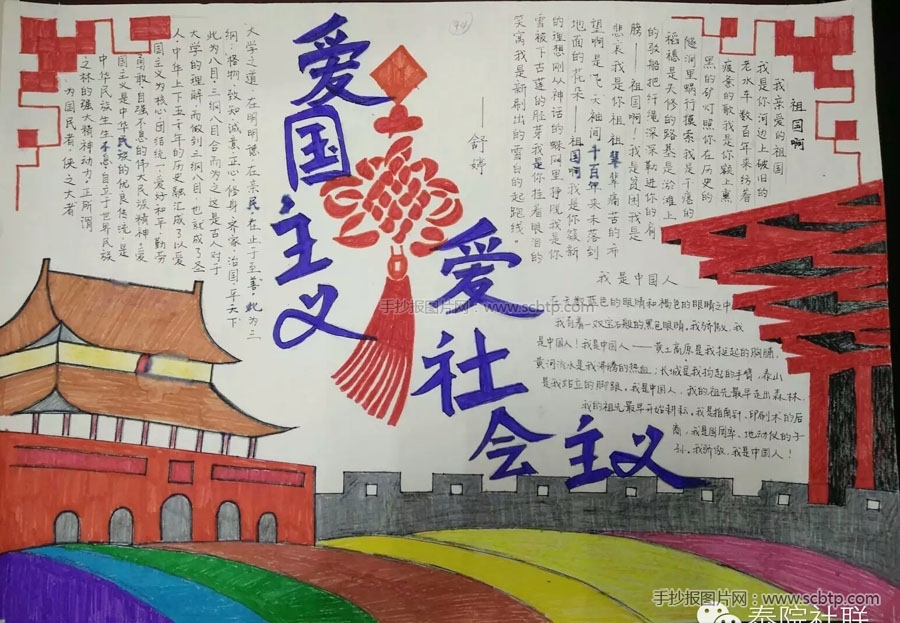 爱国主义
爱社会主义
祖国啊
我亲爱的祖国
我是你河边上破旧的
老水车 数百年来纺着
疲惫的歌我是你额上熏
黑的矿灯照你在历史的
隧洞里蜗行摸索我是干瘪的
稻穗是失修的路基是淤滩上
的驳船把纤绳深深勒进你的肩
膀——祖国啊!我是贫困我是
悲哀我是你祖祖辈辈痛苦的希
望啊是飞天袖间千百年来未落到
地面的花朵 祖国啊我是你簇新
的理想刚从神话的蛛网里挣脱我是你
雪被下古莲的胚芽我是你挂着眼泪的
笑窝我是新刷出的雪白的起跑线"
——舒婷
大学之道,在明明德,在亲民,在止于至善,此为三
纲;格物、致知、诚意、正心、修身、齐家、治国、平天下
此为八目,三纲八目合而为之,这是古人对于
大学的理解,而做到三纲八目,也就成了圣
人,中华上下五千年的历史融汇成了以爱
国主义为核心团结统一、爱好和平、勤劳
勇敢、自强不息的伟大民族精神,爱
国主义是中华民族的优良传统,是
中华民族生生不息自立于世界民族
之林的强大精神动力,正所谓
为国民者,侠之大者
我是中国人
在无数蓝色的眼睛和褐色的眼睛之中
我有着一双宝石般的黑色眼睛,我骄傲,我
是中国人!我是中国人——黄土高原是我挺起的胸膛,
黄河流水是我沸腾的热血;长城是我扬起的手臂,泰山
是我站立的脚跟。我是中国人,我的祖先最早走出森林,
我的祖先最早开始耕耘,我是指南针、印刷术的后
裔,我是圆周率、地动仪的子
孙。我骄傲,我是中国人!
手抄报图片网:www.scbtp.com
手抄报图片网:www.scbtp.com
泰院社联